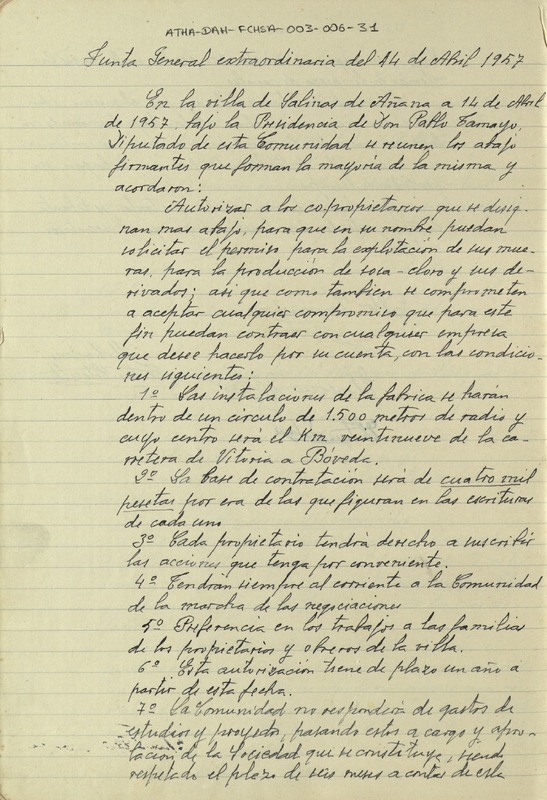 ATHA-DAH-FCHSA-003-006-31
Junta General extraordinaria del 14 de Abril 1957
En la villa de Salinas de Añana a 14 de Abril
de 1957, bajo la Presidencia de Don Pablo Tamayo,
Diputado de esta Comunidad se reunen los abajo
firmantes que forman la mayoria de la misma y
acordaron:
Autorizar a los copropietarios que se desig-
nan mas abajo, para que en su nombre puedan
solicitar el permiso para la explotación de sus mue-
ras, para la producción de sosa-cloro y sus de-
rivados; asi que como tambien se comprometen
a aceptar cualquier compromiso que para este
fin puedan contraer con cualquier empresa
que desee hacerlo por su cuenta, con las condicio-
nes siguientes:
1º Las instalaciones de la fabrica se harán
dentro de un circulo de 1.500 metros de radio y
cuyo centro será el Km veintinueve de la ca-
rretera de Vitoria a Bóveda.
2º La base de contratación será de cuatro mil
pesetas por era de las que figuran en las escrituras
de cada uno
3º Cada propietario tendrá derecho a suscribir
las acciones que tenga por conveniente.
4º Tendrán siempre al corriente a la Comunidad
de la marcha de las negociaciones
5º Preferencia en los trabajos a las familias
de los propietarios y obreros de la villa.
6º Esta autorización tiene de plazo un año a
partir de esta fecha.
7º La Comunidad no responderá de gastos de
estudios y proyectos, pasando estos a cargo y apro-
bación de la Sociedad que se constituya, siendo
respetado el plazo de seis meses a contar de esta